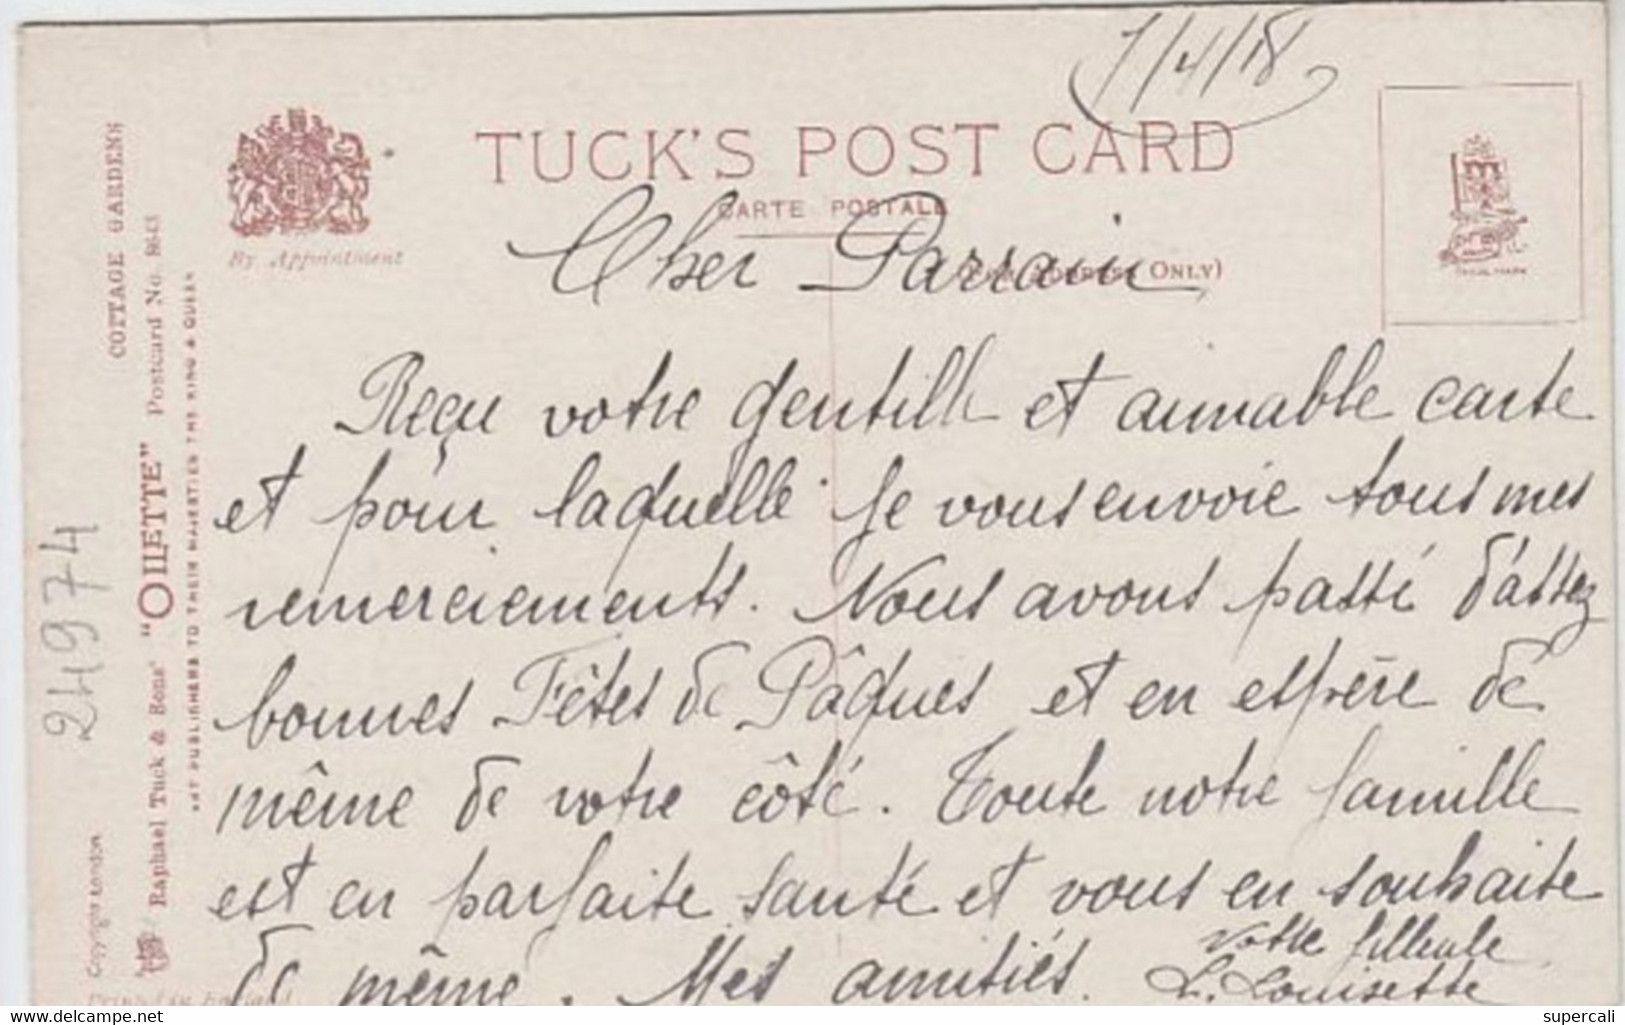 7/4/18
TUCK'S POST CARD
CARTE POSTALE
(FOR ADDRESS ONLY)
By Appointment
TRADE MARK
COTTAGE GARDENS
Raphael Tuck & Sons' "OILETTE" Postcard No. 8643
ART PUBLISHERS TO THEIR MAJESTIES THE KING & QUEEN
Copyright London
24974
Cher Parrain
Reçu votre gentille et aimable carte
et pour laquelle je vous envoie tous mes
remerciements. Nous avons passé d'assez
bonnes Fêtes de Pâques et en espère de
même de votre côté. Toute notre famille
est en parfaite santé et vous en souhaite
de même. Mes amitiés.
Votre filleule
L. Louisette
www.delcampe.net
supercali